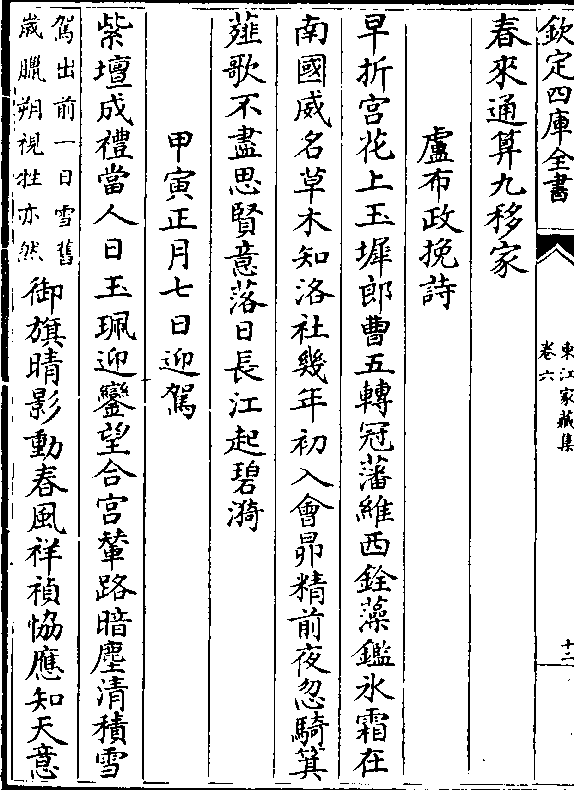 欽定四庫全書
東江家藏集
卷六
十三
春來通算九移家
盧布政挽詩
早折宫花上玉墀郎曹五轉冠藩維西銓藻鑑氷霜在
南國威名草木知洛社幾年初入會昴精前夜忽騎箕
薤歌不盡思賢意落日長江起碧漪
甲寅正月七日迎駕
紫壇成禮當人日玉珮迎鑾望合宫輦路暗塵清積雪
駕出前一日雪舊
歲臘朔視牲亦然
御旗晴影動春風祥禎恊應知天意